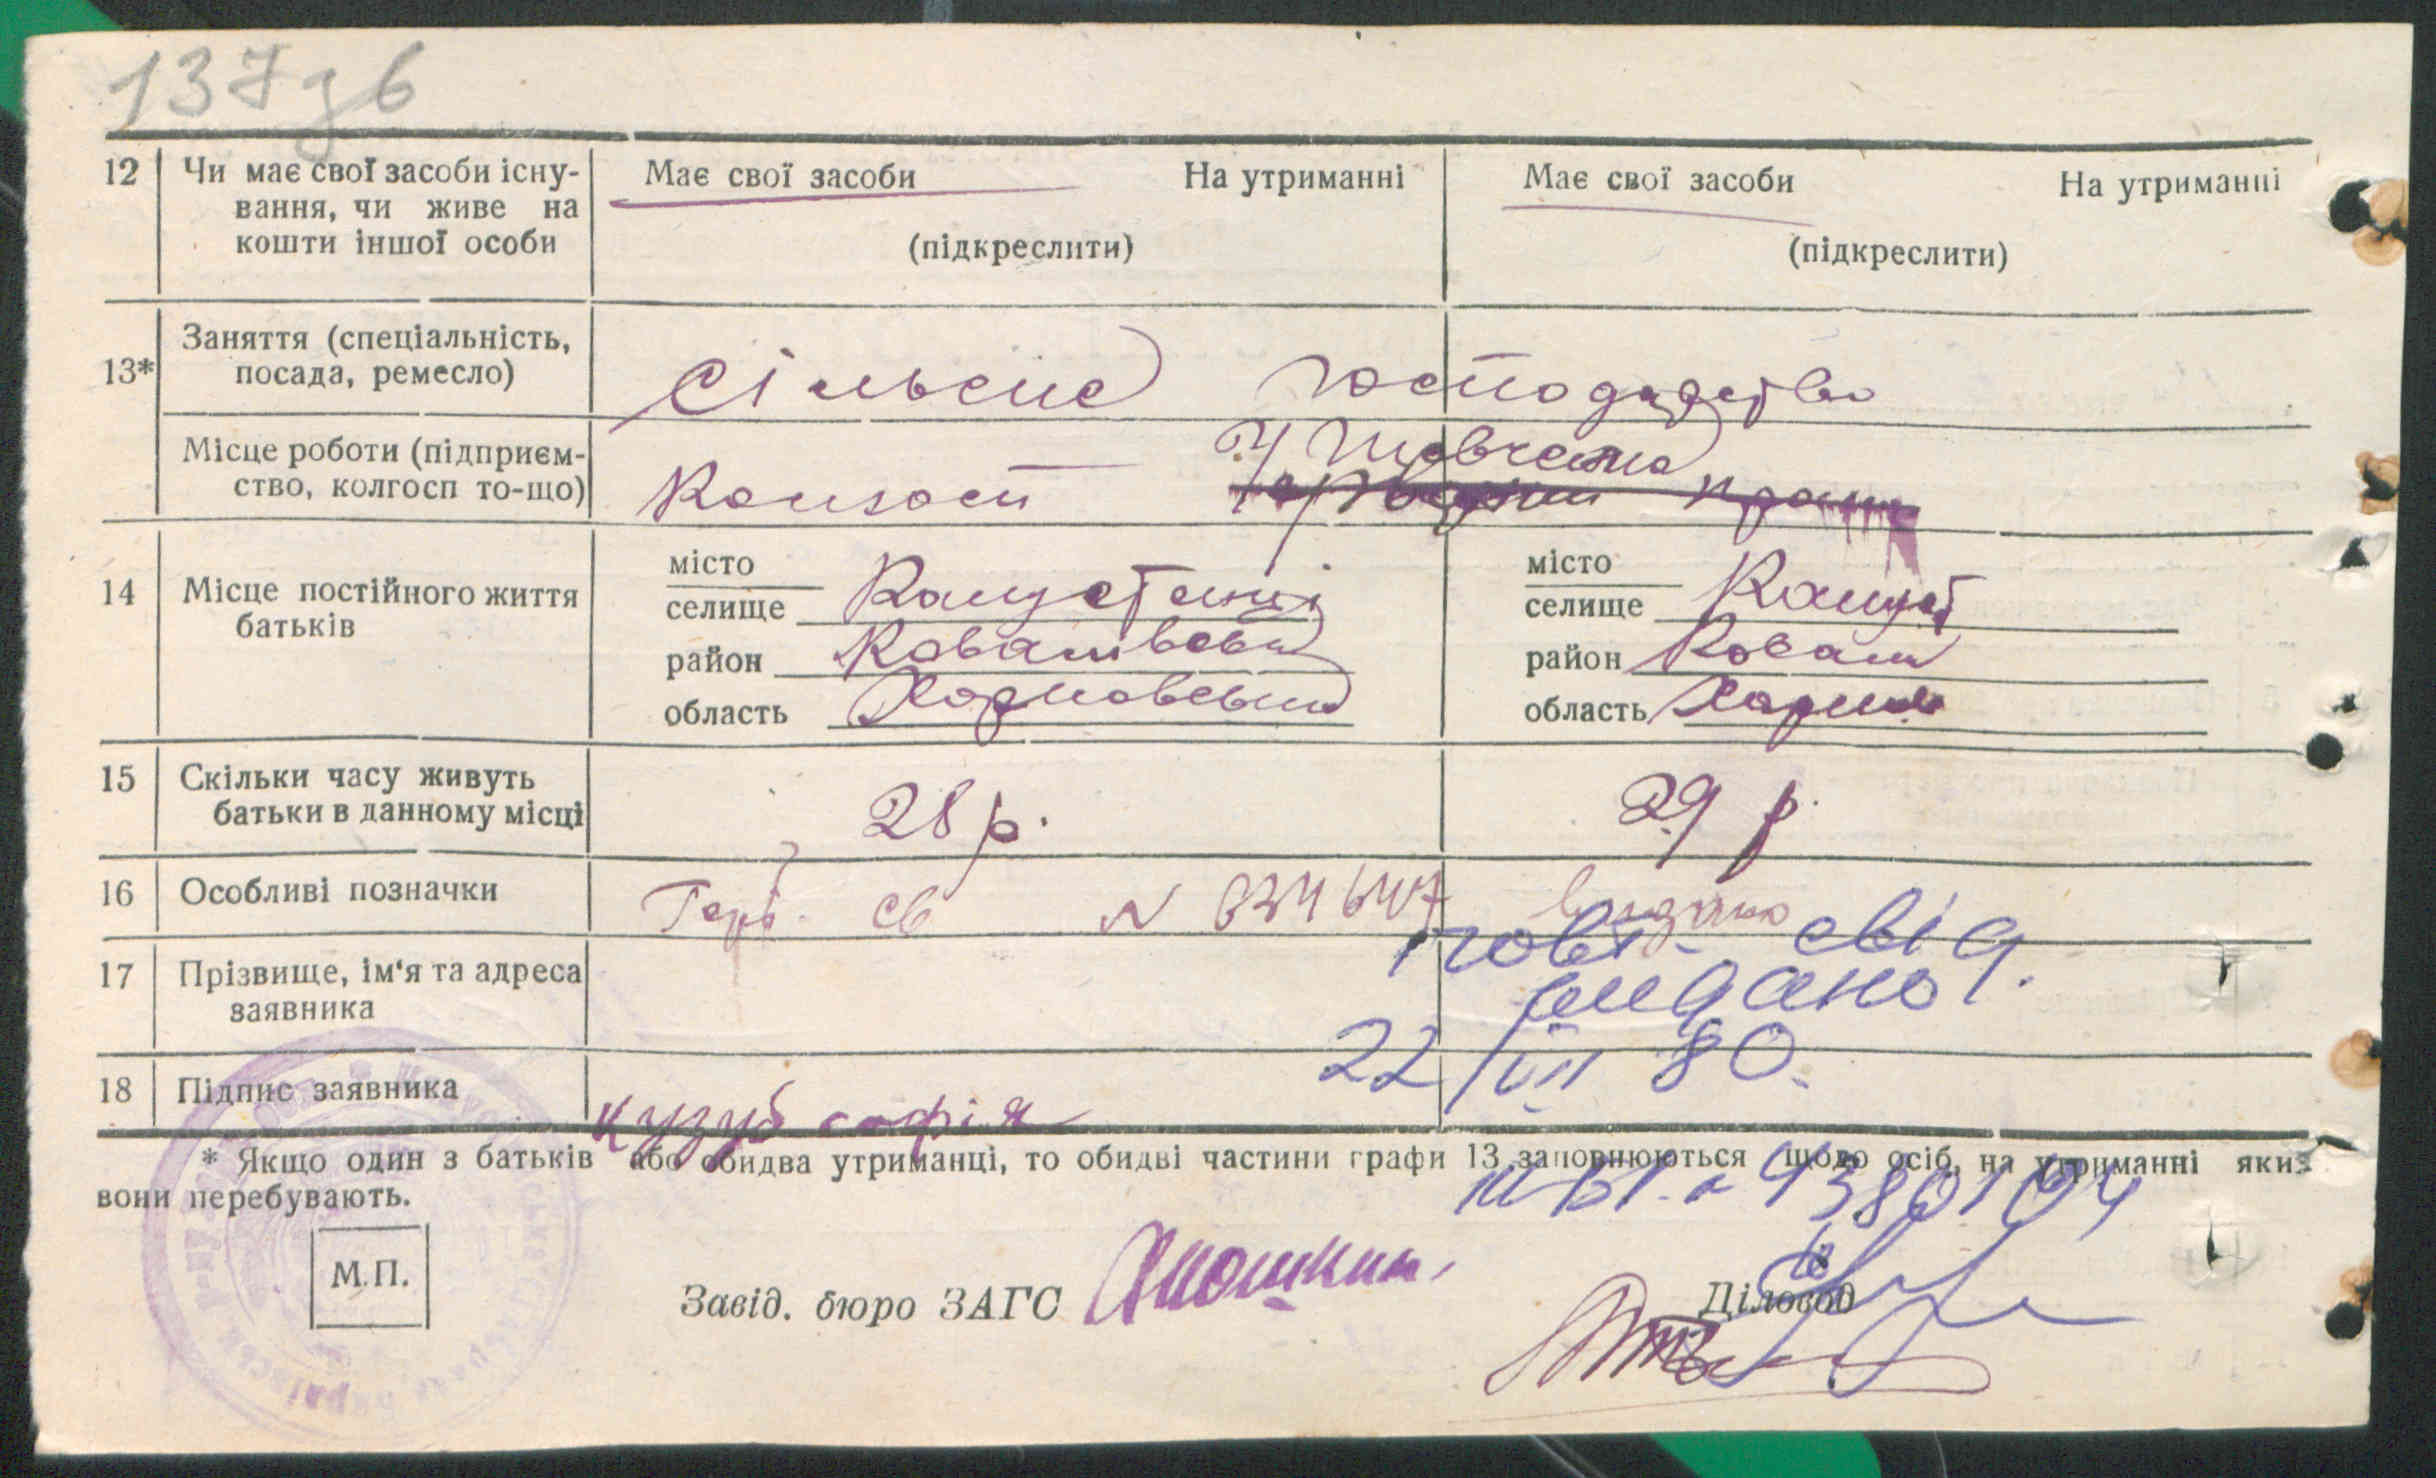 137зв
12 Чи має свої засоби існу-
вання, чи живе на
кошти іншої особи
Має свої засоби На утриманні
(підкреслити)
Має свої засоби На утриманні
(підкреслити)
13* Заняття (спеціальність,
посада, ремесло)
Сільське господарство
Місце роботи (підприєм-
ство, колгосп то-що)
Шевченка
Колгосп
14 Місце постійного життя
батьків
місто
селище Капустинці
район
область Харковська
місто
селище Капуст
район
область Харків
15 Скільки часу живуть
батьки в данному місці
28 р.
29 р.
16 Особливі позначки
св N 034647 видано
17 Прізвище, ім'я та адреса
заявника
повт. свід.
видано
22/VII 80.
18 Підпис заявника
Кузуб Софія
* Якщо один з батьків або обидва утриманці, то обидві частини графи 13 заповнюються щодо осіб, на утриманні яких
вони перебувають.
М.П.
Завід. бюро ЗАГС
Діловод